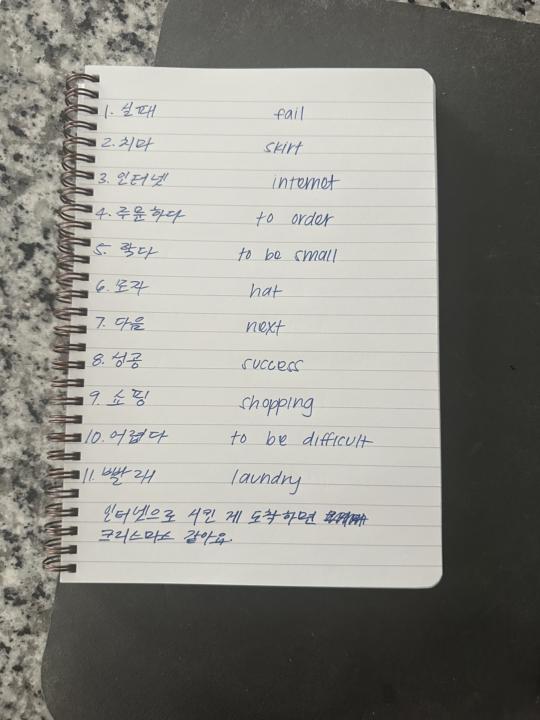 1. 실패 fail
2. 치마 skirt
3. 인터넷 internet
4. 주문하다 to order
5. 작다 to be small
6. 모자 hat
7. 다음 next
8. 성공 success
9. 쇼핑 shopping
10. 어렵다 to be difficult
11. 빨래 laundry
인터넷으로 시킨 게 도착하면
크리스마스 같아요.